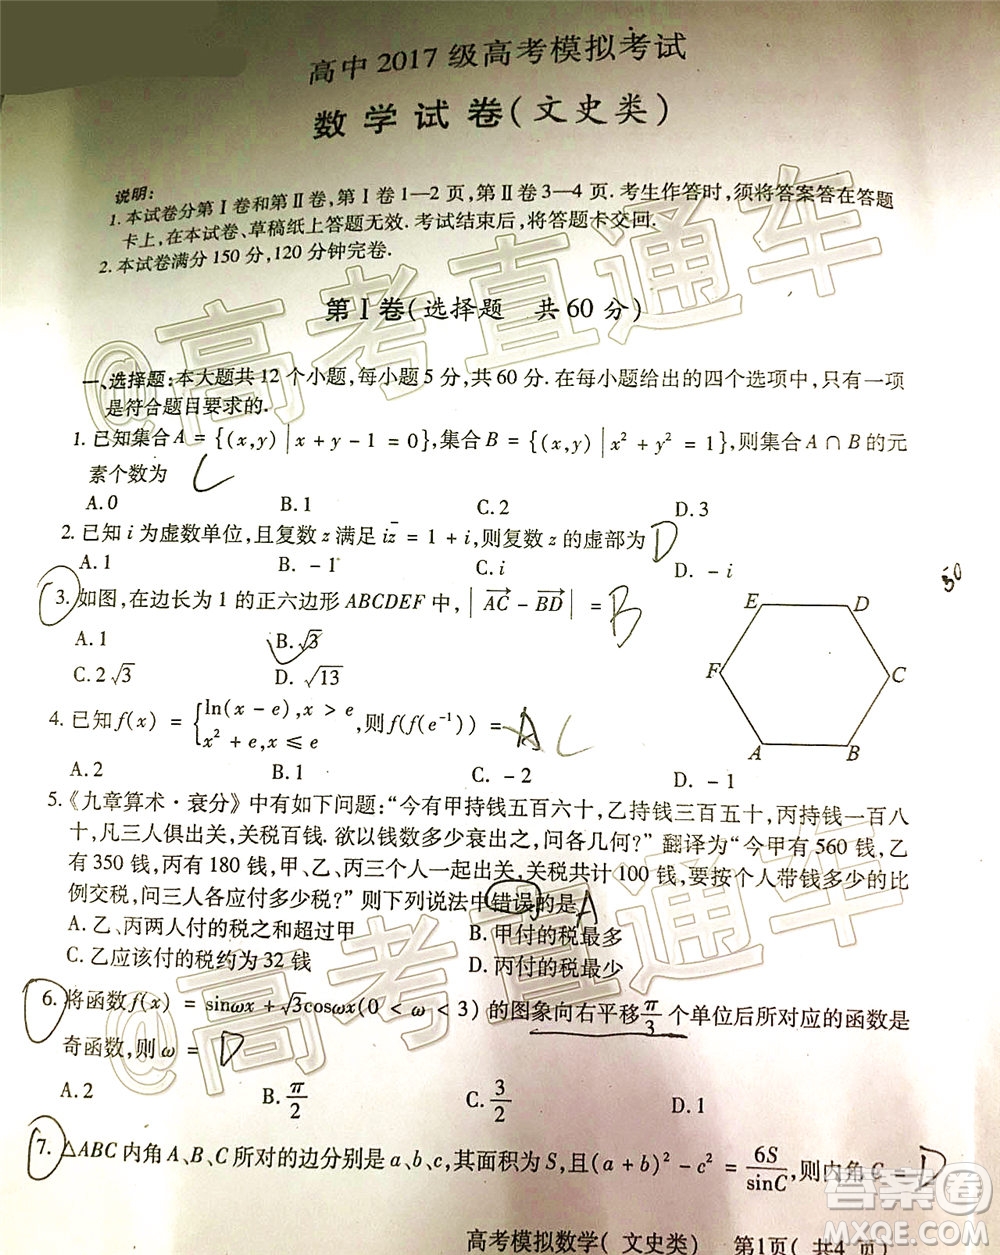 高中2017级高考模拟考试
数学试卷(文史类)
说明:
1.本试卷分第Ⅰ卷和第Ⅱ卷,第Ⅰ卷1—2页,第Ⅱ卷3—4页.考生作答时,须将答案答在答题
卡上,在本试卷、草稿纸上答题无效.考试结束后,将答题卡交回.
2.本试卷满分150分,120分钟完卷.
第Ⅰ卷(选择题 共60分)
一、选择题:本大题共12个小题,每小题5分,共60分.在每小题给出的四个选项中,只有一项
是符合题目要求的.
1.已知集合A={(x,y)|x+y-1=0},集合B={(x,y)|x²+y²=1},则集合A∩B的元
素个数为 C
A.0 B.1 C.2 D.3
2.已知i为虚数单位,且复数z满足iz̄=1+i,则复数z的虚部为 D
A.1 B.-1 C.i D.-i
50
3.如图,在边长为1的正六边形ABCDEF中,|AC→-BD→|= B
A.1 B.√3
C.2√3 D.√13
E D F C A B
4.已知f(x)={ln(x-e),x>e
x²+e,x≤e,则f(f(e⁻¹))= A C
A.2 B.1 C.-2 D.-1
5.《九章算术·衰分》中有如下问题:“今有甲持钱五百六十,乙持钱三百五十,丙持钱一百八
十,凡三人俱出关,关税百钱.欲以钱数多少衰出之,问各几何?”翻译为“今甲有560钱,乙
有350钱,丙有180钱,甲、乙、丙三个人一起出关,关税共计100钱,要按个人带钱多少的比
例交税,问三人各应付多少税?”则下列说法中错误的是 A
A.乙、丙两人付的税之和超过甲 B.甲付的税最多
C.乙应该付的税约为32钱 D.丙付的税最少
6.将函数f(x)=sinωx+√3cosωx(0<ω<3)的图象向右平移π/3个单位后所对应的函数是
奇函数,则ω= D
A.2 B.π/2 C.3/2 D.1
7.△ABC内角A、B、C所对的边分别是a、b、c,其面积为S,且(a+b)²-c²=6S/sinC,则内角C= D
高考模拟数学(文史类) 第1页(共4页)
@高考直通车
@高考直通车
答案圈
MXQE.COM